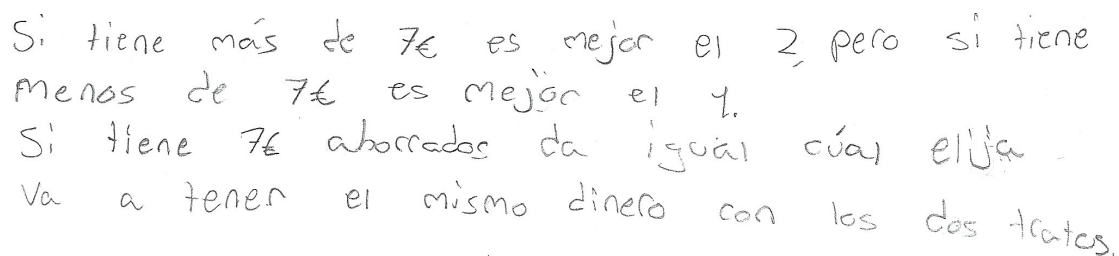 Si tiene más de 7€ es mejor el 2, pero si tiene
menos de 7€ es mejor el 1.
Si tiene 7€ ahorrados da igual cúal elija
Va a tener el mismo dinero con los dos tratos.